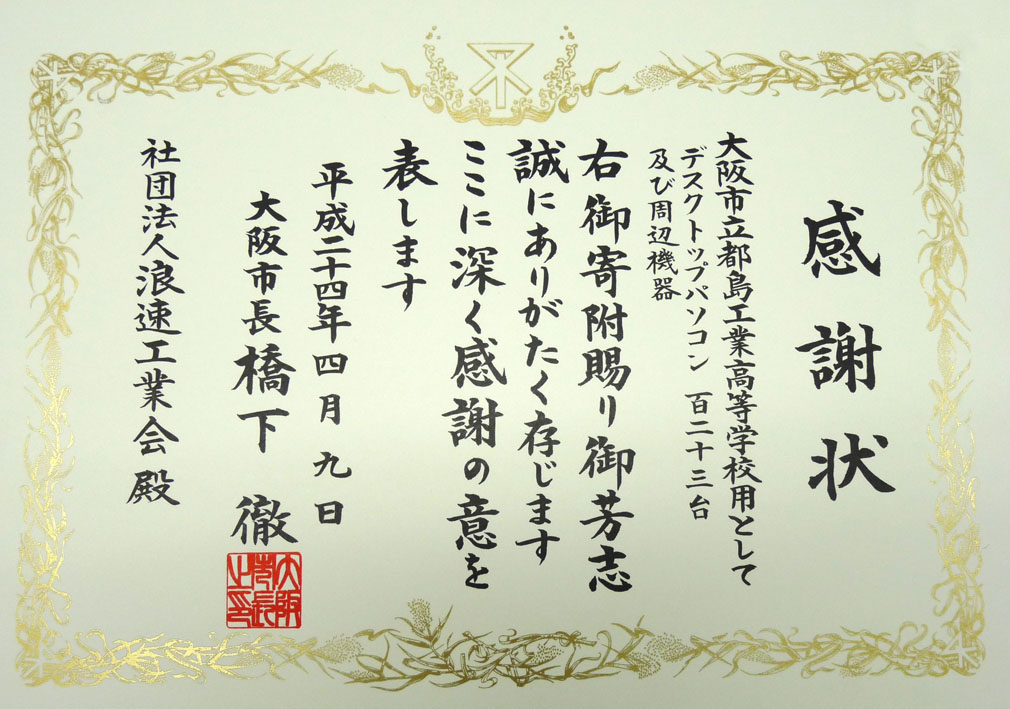 感謝状
大阪市立都島工業高等学校用として
デスクトップパソコン 百二十三台
及び周辺機器
右御寄附賜り御芳志
誠にありがたく存じます
ここに深く感謝の意を
表します
平成二十四年四月九日
大阪市長 橋下 徹
大阪市長之印
社団法人浪速工業会殿